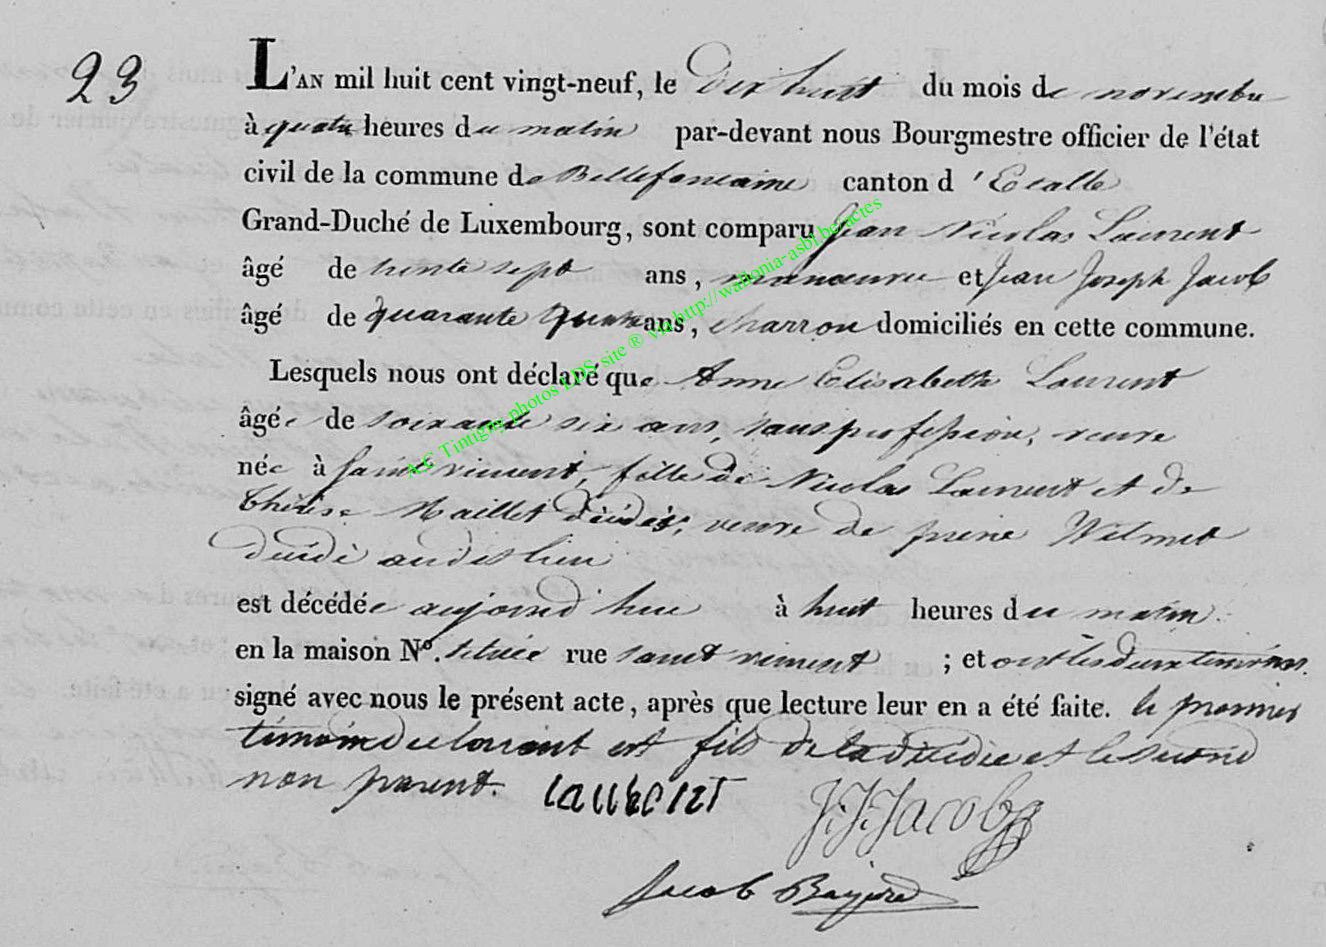 23
L'AN mil huit cent vingt-neuf, le dix huit du mois de novembre
à quatre heures du matin par-devant nous Bourgmestre officier de l'état
civil de la commune de Bellefontaine canton d'Etalle
Grand-Duché de Luxembourg, sont comparu Jean Nicolas Laurent
âgé de trente sept ans, manœuvre et Jean Joseph Jacob
âgé de quarante quatre ans, charron domiciliés en cette commune.
Lesquels nous ont déclaré que Anne Elisabeth Laurent
âgée de soixante six ans, sans profession, veuve
née à saint vincent, fille de Nicolas Laurent et de
thérèse Maillet décédés; veuve de pierre Wilmet
décédé audit lieu
est décédée aujourd'hui à huit heures du matin
en la maison N°. située rue saint vincent ; et ont les deux témoins
signé avec nous le présent acte, après que lecture leur en a été faite. le premier
témoin est fils de la décédée et le second
non parent. Laurent J.J. Jacob
Jacob
A.C Tintigny photos LDS site ® via http://wallonia-asbl.be/actes